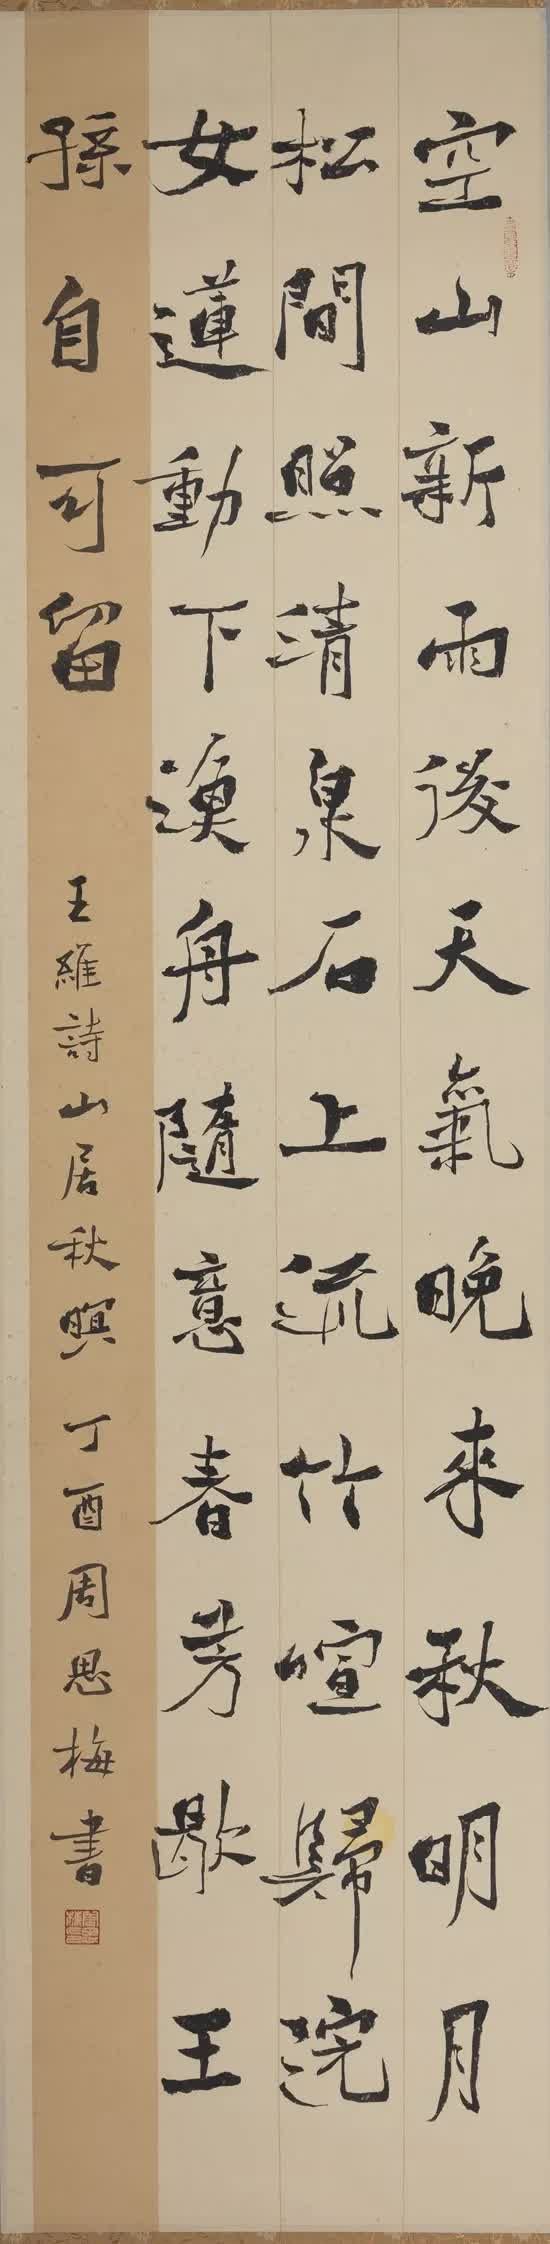 空山新雨後天氣晚來秋明月
松間照清泉石上流竹喧歸浣
女蓮動下漁舟隨意春芳歇王
孫自可留 王維詩山居秋暝 丁酉周思梅書